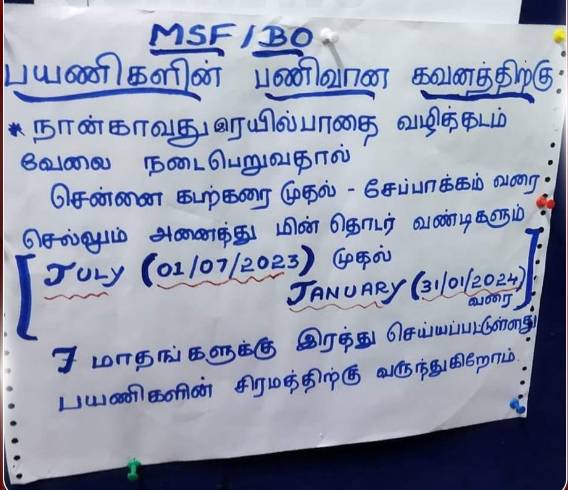 MSF/BO
பயணிகளின் பணிவான கவனத்திற்கு
* நான்காவது இரயில்பாதை வழித்தடம்
வேலை நடைபெறுவதால்
சென்னை கடற்கரை முதல் - சேப்பாக்கம் வரை
செல்லும் அனைத்து மின் தொடர் வண்டிகளும்
[JULY (01/07/2023) முதல்
JANUARY (31/01/2024)
வரை]
7 மாதங்களுக்கு இரத்து செய்யப்பட்டுள்ளது
பயணிகளின் சிரமத்திற்கு வருந்துகிறோம்.